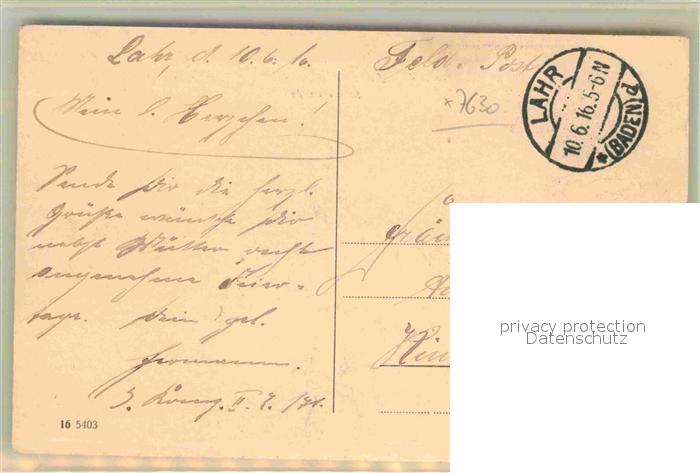 Lahr, d. 10.6.16.
Feld-Post
LAHR
10.6.16.5-6N
*(BADEN)d
*7630
Mein l. Herzchen!
Sende Dir die herzl.
Grüße wünsche Dir
nebst Mutter recht
angenehme Feier-
tage. Dein gel.
Hermann.
3. Komp. II. 
16 5403
privacy protection
Datenschutz